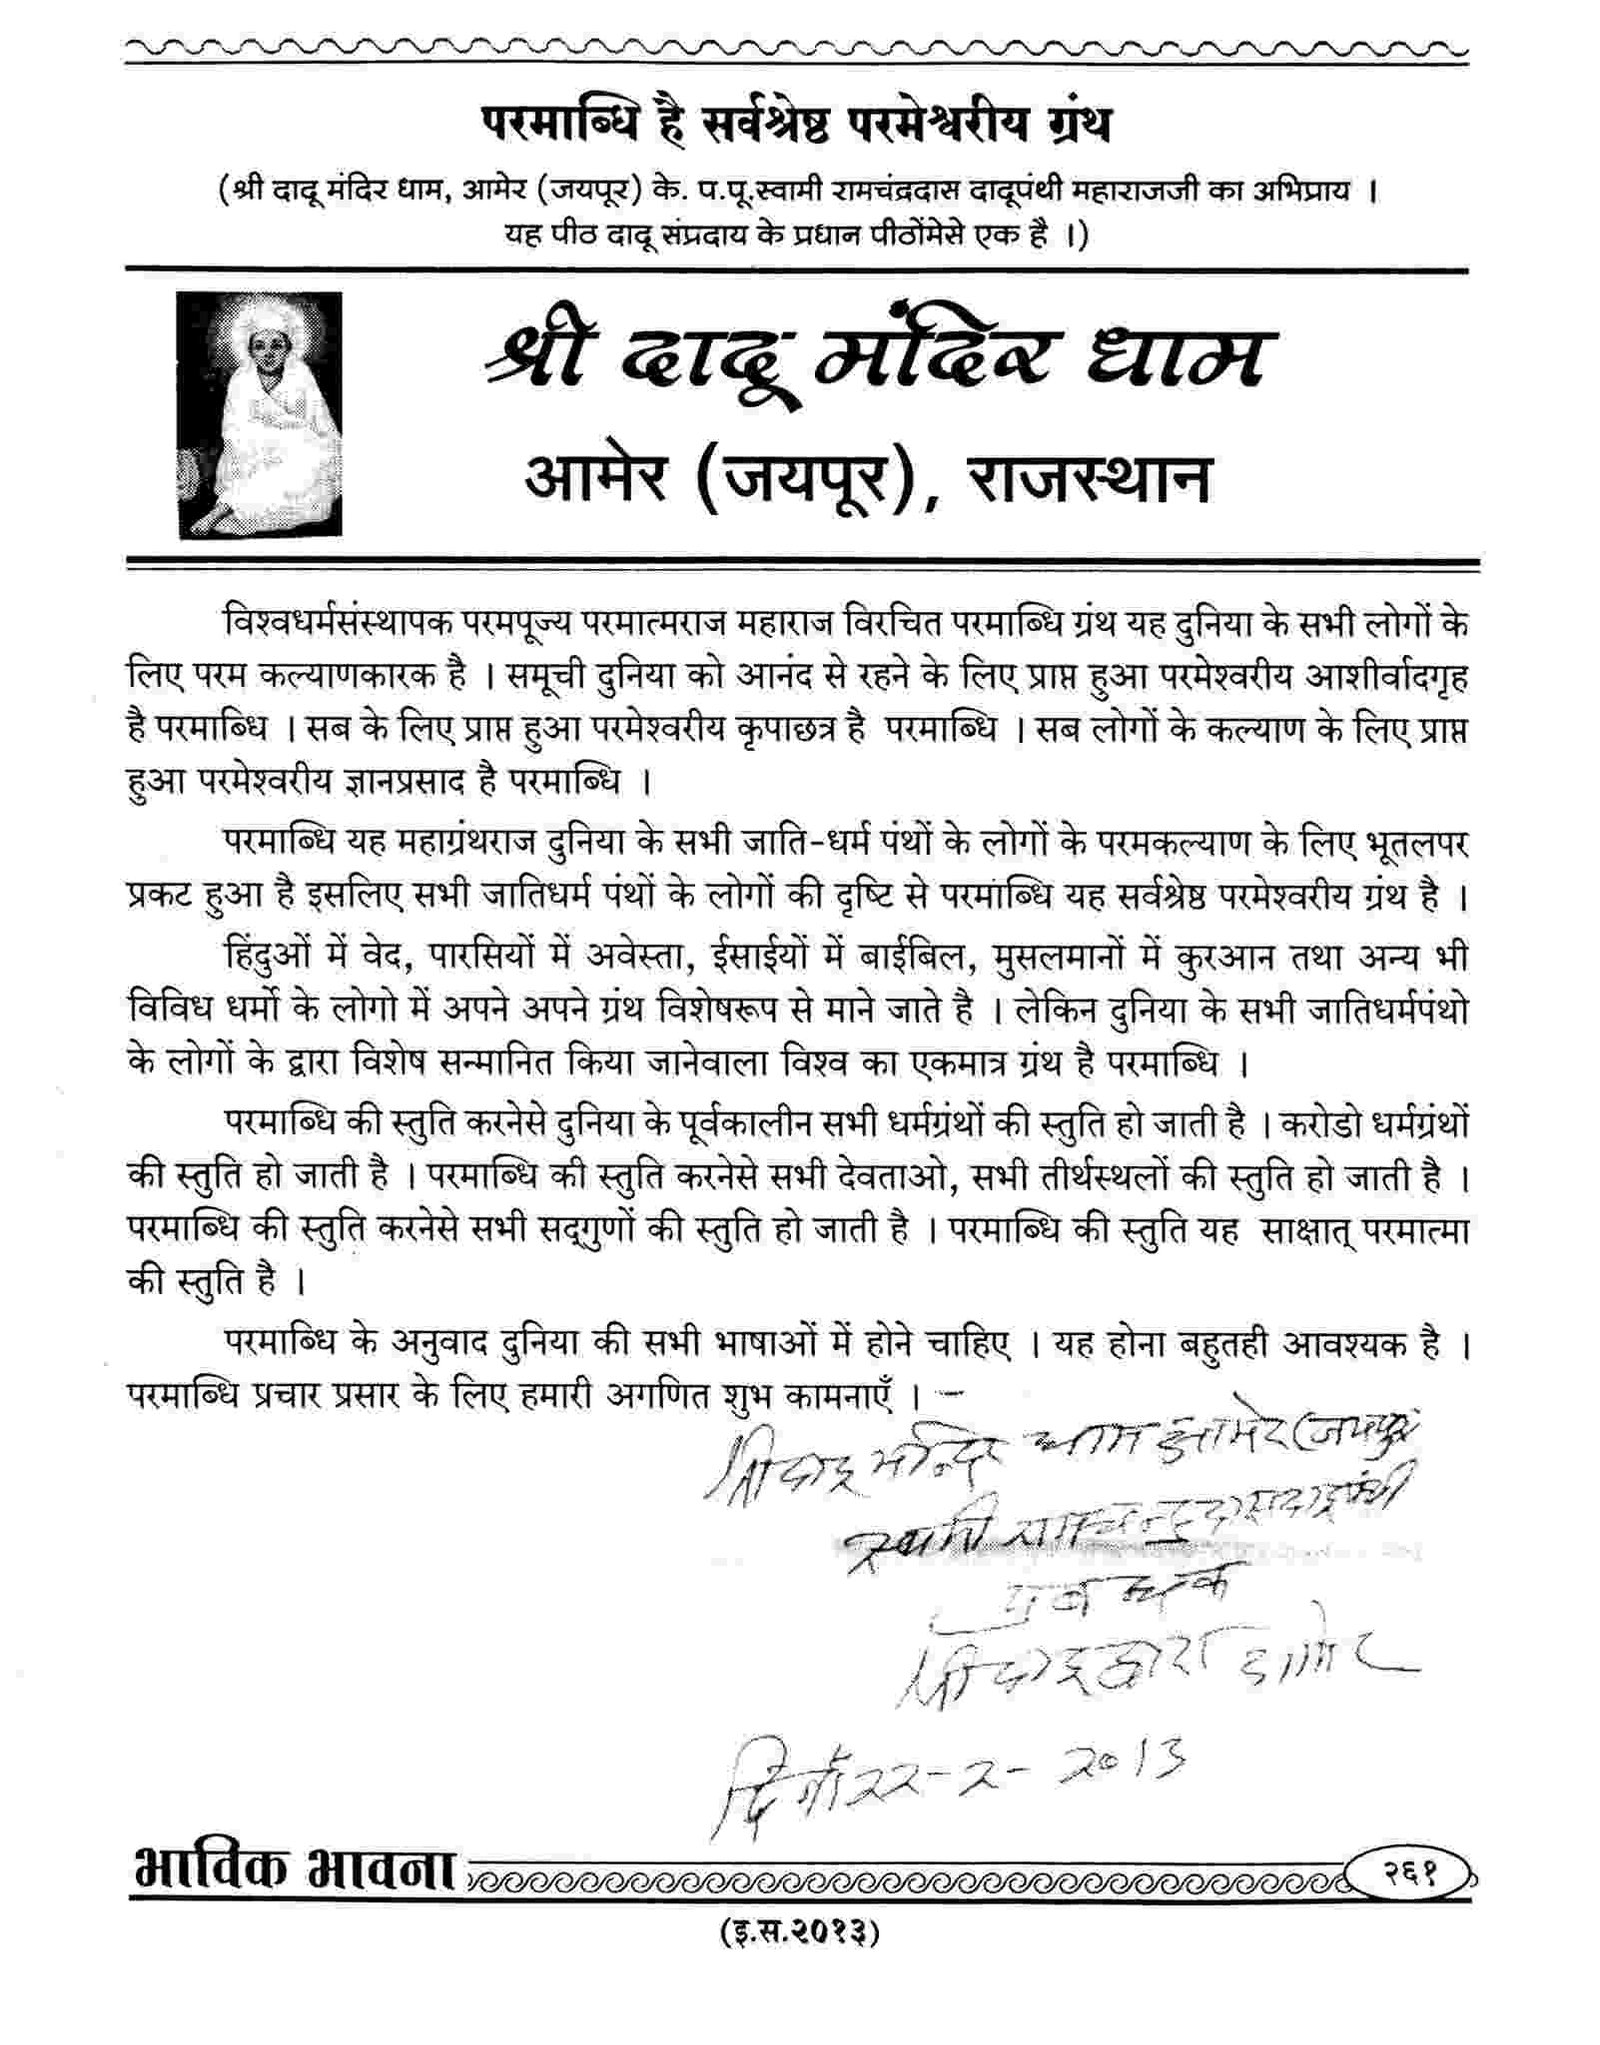 परमाब्धि है सर्वश्रेष्ठ परमेश्वरीय ग्रंथ
(श्री दादू मंदिर धाम, आमेर (जयपूर) के. प.पू.स्वामी रामचंद्रदास दादूपंथी महाराजजी का अभिप्राय ।
यह पीठ दादू संप्रदाय के प्रधान पीठोंमेसे एक है ।)
श्री दादू मंदिर धाम
आमेर (जयपूर), राजस्थान
विश्वधर्मसंस्थापक परमपूज्य परमात्मराज महाराज विरचित परमाब्धि ग्रंथ यह दुनिया के सभी लोगों के
लिए परम कल्याणकारक है । समूची दुनिया को आनंद से रहने के लिए प्राप्त हुआ परमेश्वरीय आशीर्वादगृह
है परमाब्धि । सब के लिए प्राप्त हुआ परमेश्वरीय कृपाछत्र है परमाब्धि । सब लोगों के कल्याण के लिए प्राप्त
हुआ परमेश्वरीय ज्ञानप्रसाद है परमाब्धि ।
परमाब्धि यह महाग्रंथराज दुनिया के सभी जाति-धर्म पंथों के लोगों के परमकल्याण के लिए भूतलपर
प्रकट हुआ है इसलिए सभी जातिधर्म पंथों के लोगों की दृष्टि से परमाब्धि यह सर्वश्रेष्ठ परमेश्वरीय ग्रंथ है ।
हिंदुओं में वेद, पारसियों में अवेस्ता, ईसाईयों में बाईबिल, मुसलमानों में कुरआन तथा अन्य भी
विविध धर्मो के लोगो में अपने अपने ग्रंथ विशेषरूप से माने जाते है । लेकिन दुनिया के सभी जातिधर्मपंथो
के लोगों के द्वारा विशेष सन्मानित किया जानेवाला विश्व का एकमात्र ग्रंथ है परमाब्धि ।
परमाब्धि की स्तुति करनेसे दुनिया के पूर्वकालीन सभी धर्मग्रंथों की स्तुति हो जाती है । करोडो धर्मग्रंथों
की स्तुति हो जाती है । परमाब्धि की स्तुति करनेसे सभी देवताओ, सभी तीर्थस्थलों की स्तुति हो जाती है ।
परमाब्धि की स्तुति करनेसे सभी सद्‌गुणों की स्तुति हो जाती है । परमाब्धि की स्तुति यह साक्षात् परमात्मा
की स्तुति है ।
परमाब्धि के अनुवाद दुनिया की सभी भाषाओं में होने चाहिए । यह होना बहुतही आवश्यक है ।
परमाब्धि प्रचार प्रसार के लिए हमारी अगणित शुभ कामनाएँ ।
श्री दादू मन्दिर धाम आमेर (जयपुर)
स्वामी रामचन्द्रदास दादूपंथी
प्रबन्धक
श्री दादू द्वारा आमेर
22-2-2013
भाविक भावना
२६१
(इ.स.२०१३)